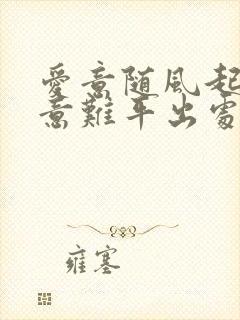 愛意随風起
意難平出處
雍塞